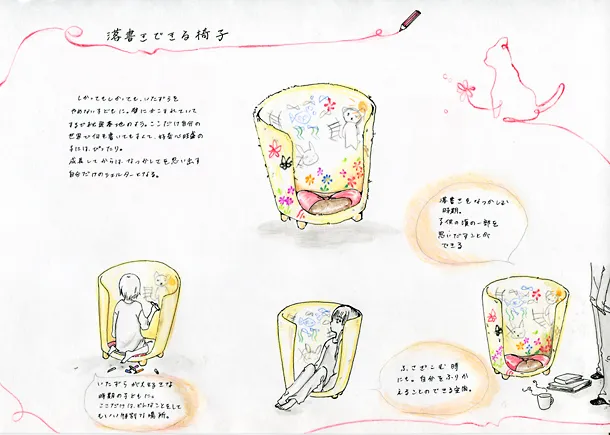 落書きできる椅子
しかってもしかっても、いたずらを
やめない子どもに。壁にかこまれていて
まるで秘密基地のよう。ここだけ自分の
世界で何を書いてもよくて、好奇心旺盛の
子には、ぴったり。
成長してからは、なつかしさを思い出す
自分だけのシェルターとなる。
落書きもなつかしい
時期。
子供の頃の一部を
思いだすことが
できる
いたずらが大好きな
時期の子どもに。
ここだけは、どんなことをして
もいい特別な場所。
ふさぎこむ時
にも。自分をふりか
えることのできる空間。